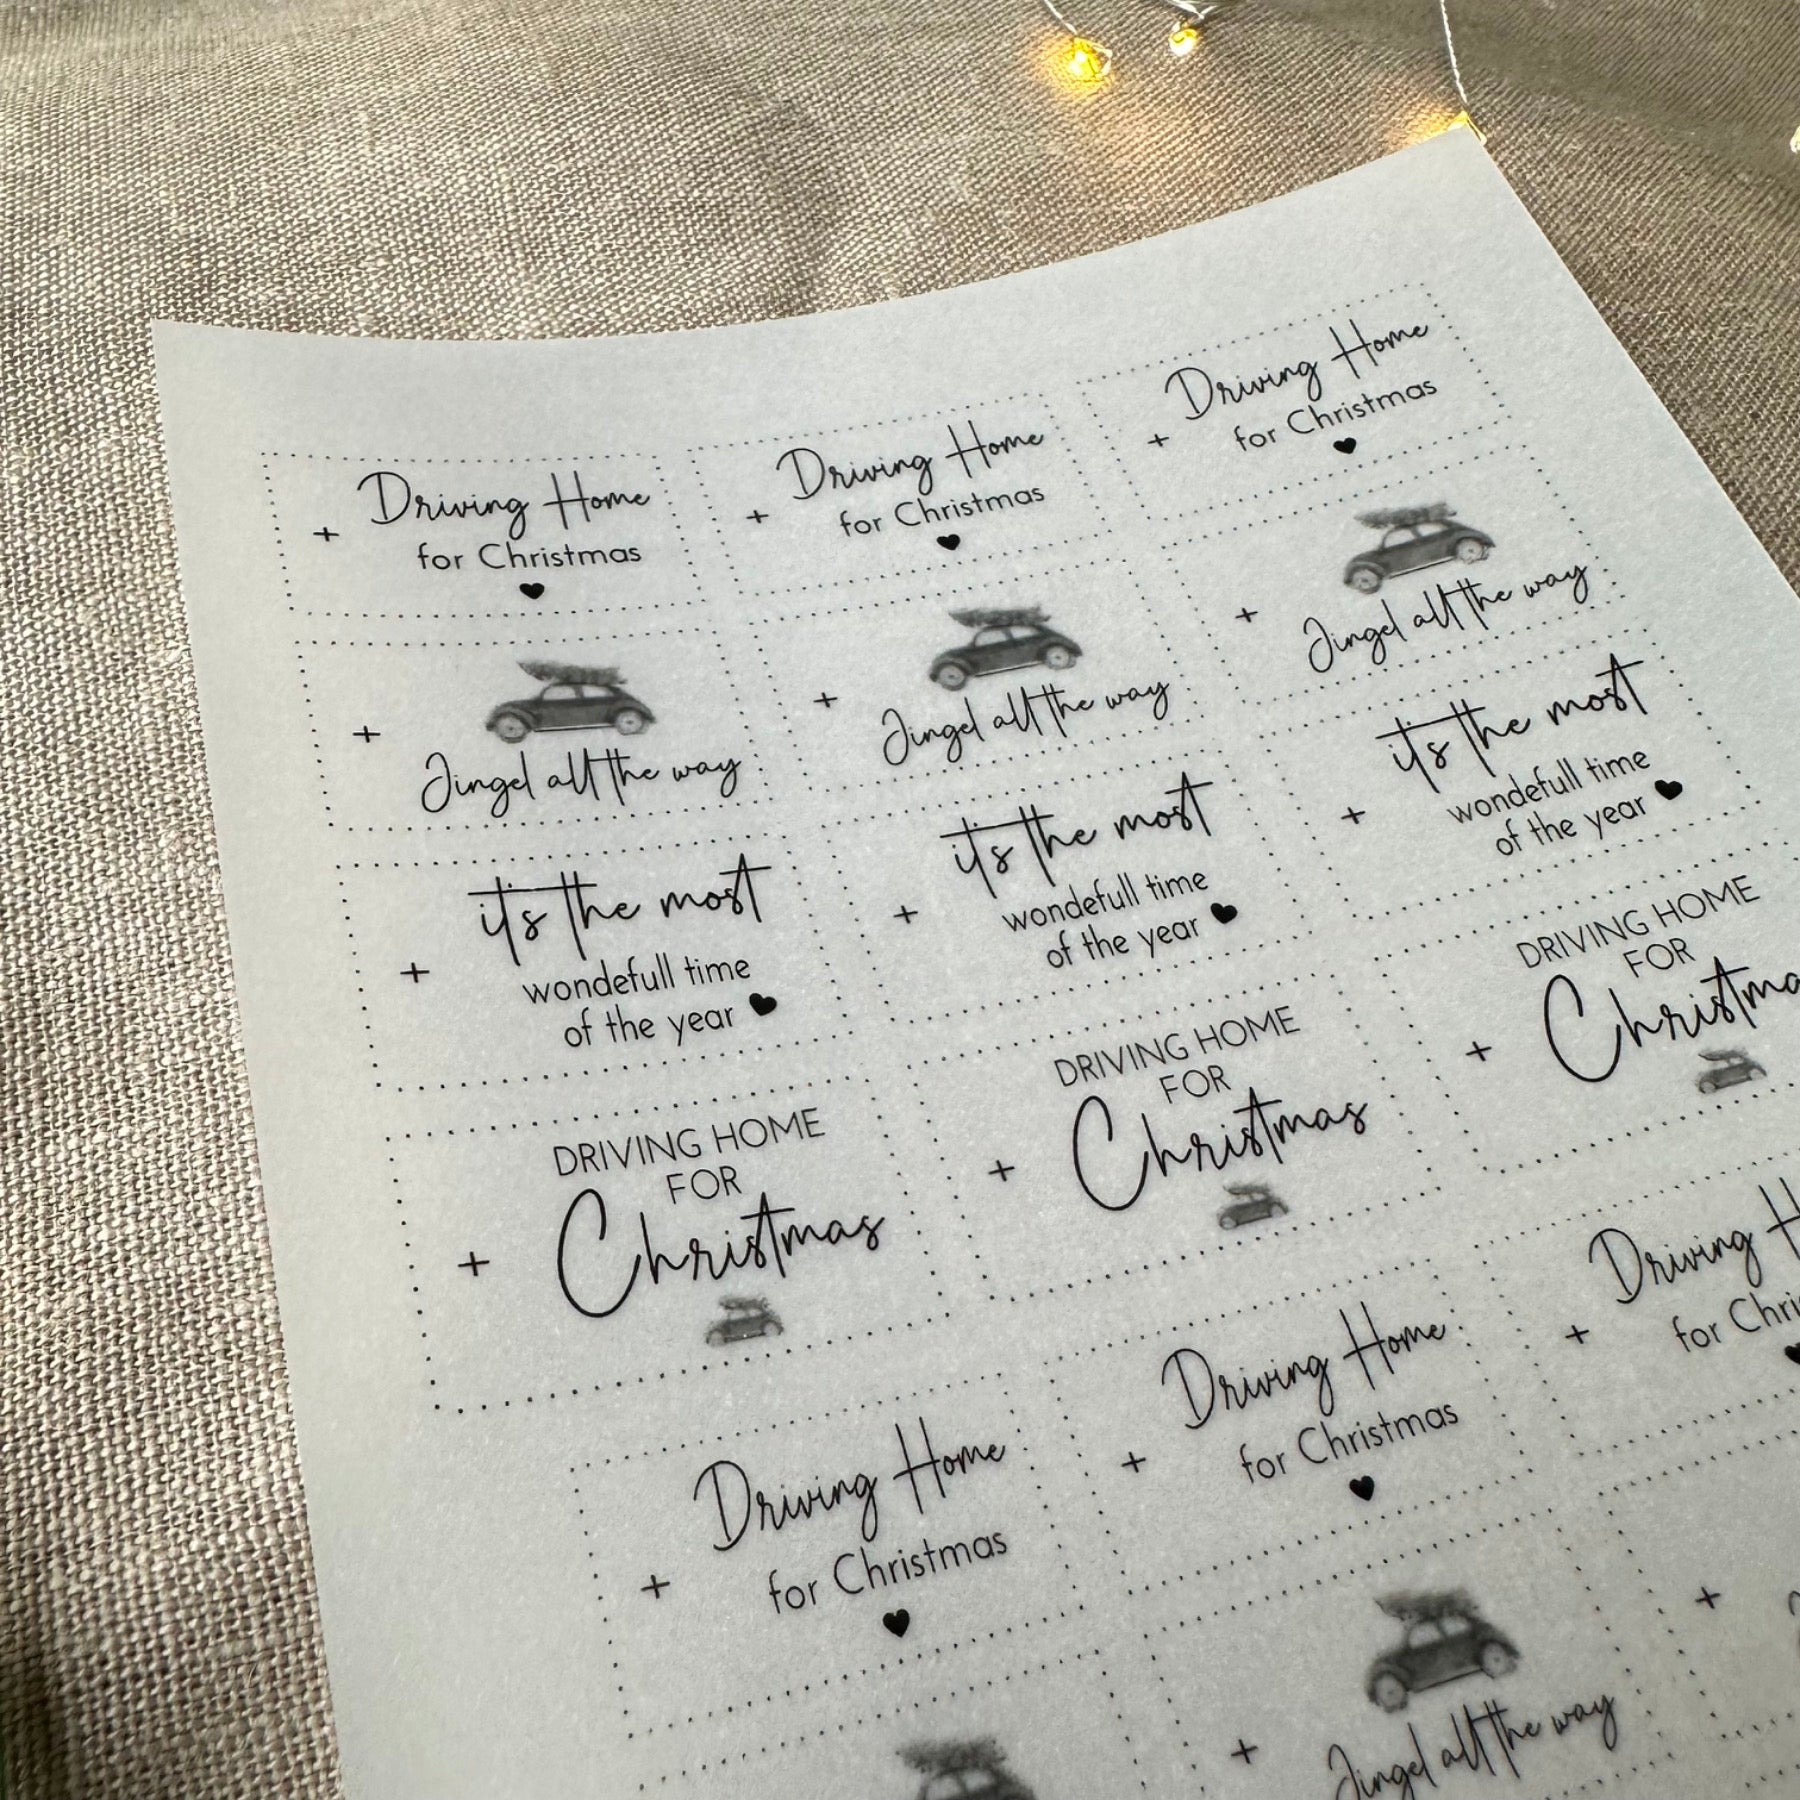 Driving Home
for Christmas
Driving Home
for Christmas
Driving Home
for Christmas
Jingel all the way
Jingel all the way
Jingel all the way
it's the most
wondefull time
of the year
it's the most
wondefull time
of the year
it's the most
wondefull time
of the year
DRIVING HOME
FOR
Christmas
DRIVING HOME
FOR
Christmas
DRIVING HOME
FOR
Driving Home
for Christmas
Driving Home
for Christmas
Driving
for
Jingel all the way